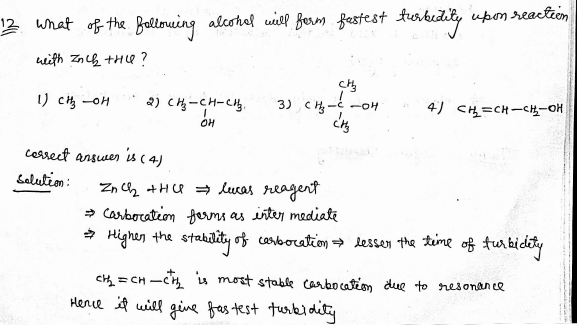 12 What of the following alcohol will form fastest turbidity upon reaction
with ZnCl2 + HCl ?
1) CH3 -OH 2) CH3-CH-CH3 3) CH3-C-OH 4) CH2=CH-CH2-OH
OH CH3 CH3
correct answer is (4)
Solution: ZnCl2 + HCl ⇒ lucas reagent
⇒ Carbocation forms as intermediate
⇒ Higher the stability of carbocation ⇒ lesser the time of turbidity
CH2=CH-CH2+ is most stable carbocation due to resonance
Hence it will give fastest turbidity